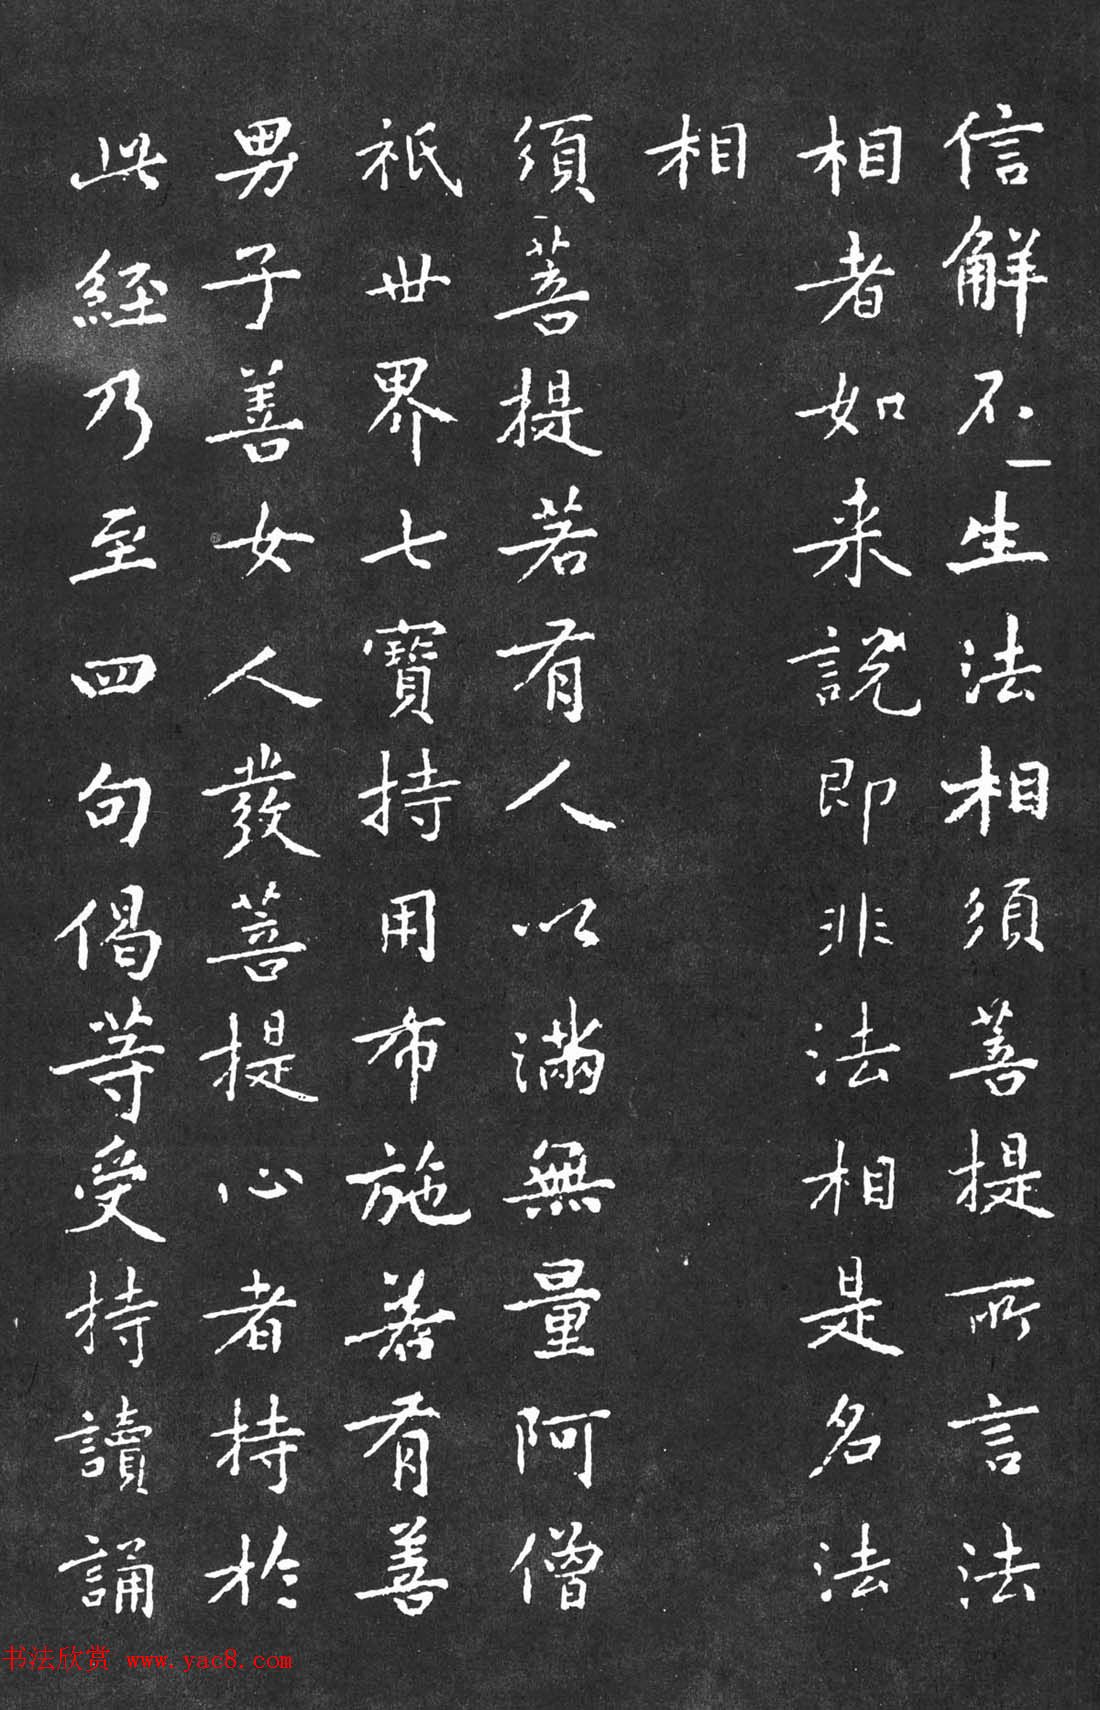 信解不生法相須菩提所言法
相者如来說即非法相是名法
相
須菩提若有人以滿無量阿僧
祇世界七寶持用布施若有善
男子善女人發菩提心者持於
此經乃至四句偈等受持讀誦
书法欣赏 www.yac8.com